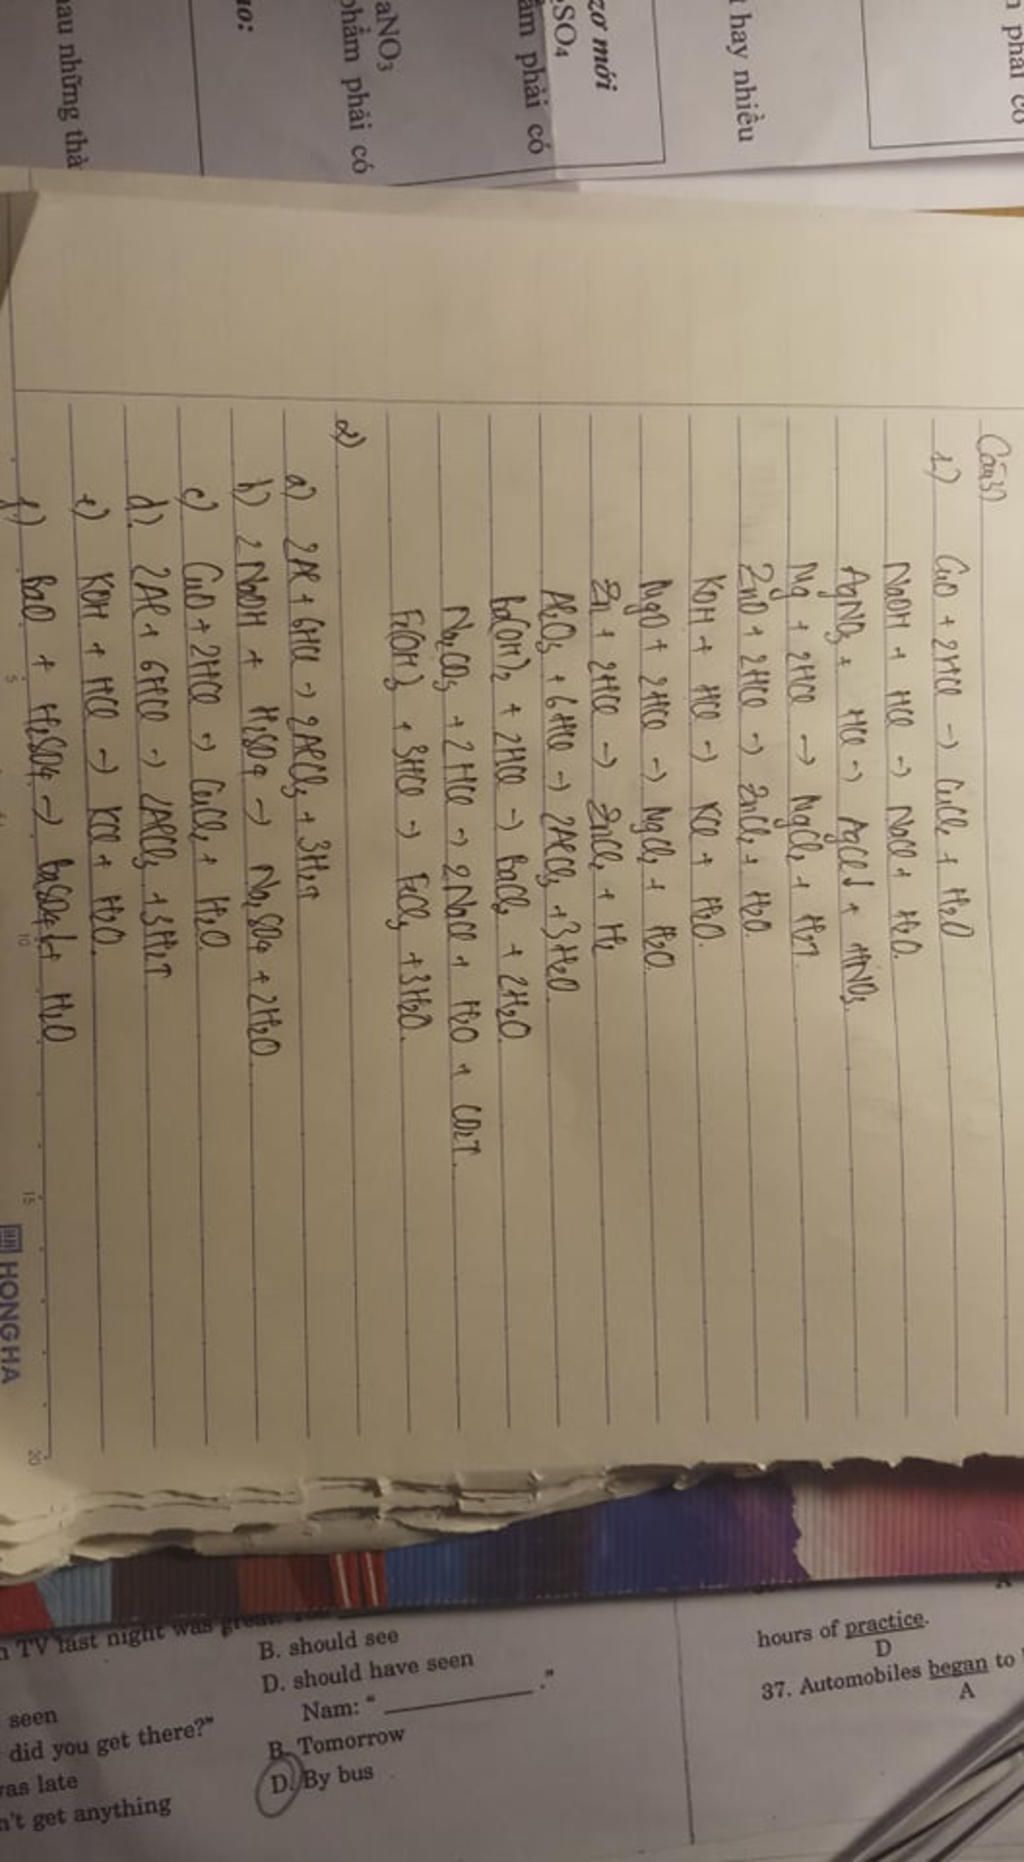 Câu 3)
1) CuO + 2HCl → CuCl₂ + H₂O
NaOH + HCl → NaCl + H₂O.
AgNO₃ + HCl → AgCl↓ + HNO₃.
Mg + 2HCl → MgCl₂ + H₂↑.
ZnO + 2HCl → ZnCl₂ + H₂O.
KOH + HCl → KCl + H₂O.
MgO + 2HCl → MgCl₂ + H₂O.
Zn + 2HCl → ZnCl₂ + H₂
Al₂O₃ + 6HCl → 2AlCl₃ + 3H₂O
Ba(OH)₂ + 2HCl → BaCl₂ + 2H₂O.
Na₂CO₃ + 2HCl → 2NaCl + H₂O + CO₂↑.
Fe(OH)₃ + 3HCl → FeCl₃ + 3H₂O.
2)
a) 2Al + 6HCl → 2AlCl₃ + 3H₂↑
b) 2NaOH + H₂SO₄ → Na₂SO₄ + 2H₂O.
c) CuO + 2HCl → CuCl₂ + H₂O.
d) 2Al + 6HCl → 2AlCl₃ + 3H₂↑
e) KOH + HCl → KCl + H₂O.
f) BaO + H₂SO₄ → BaSO₄↓ + H₂O
5 10 15 20
HONG HA
n phải có
t hay nhiều
zơ mới
SO₄
ẩm phải có
aNO₃
phẩm phải có
ao:
au những thà
n TV last night was great.
B. should see
D. should have seen
seen
Nam: "__________."
did you get there?"
B. Tomorrow
was late
D. By bus
n't get anything
hours of practice.
D
37. Automobiles began to
A